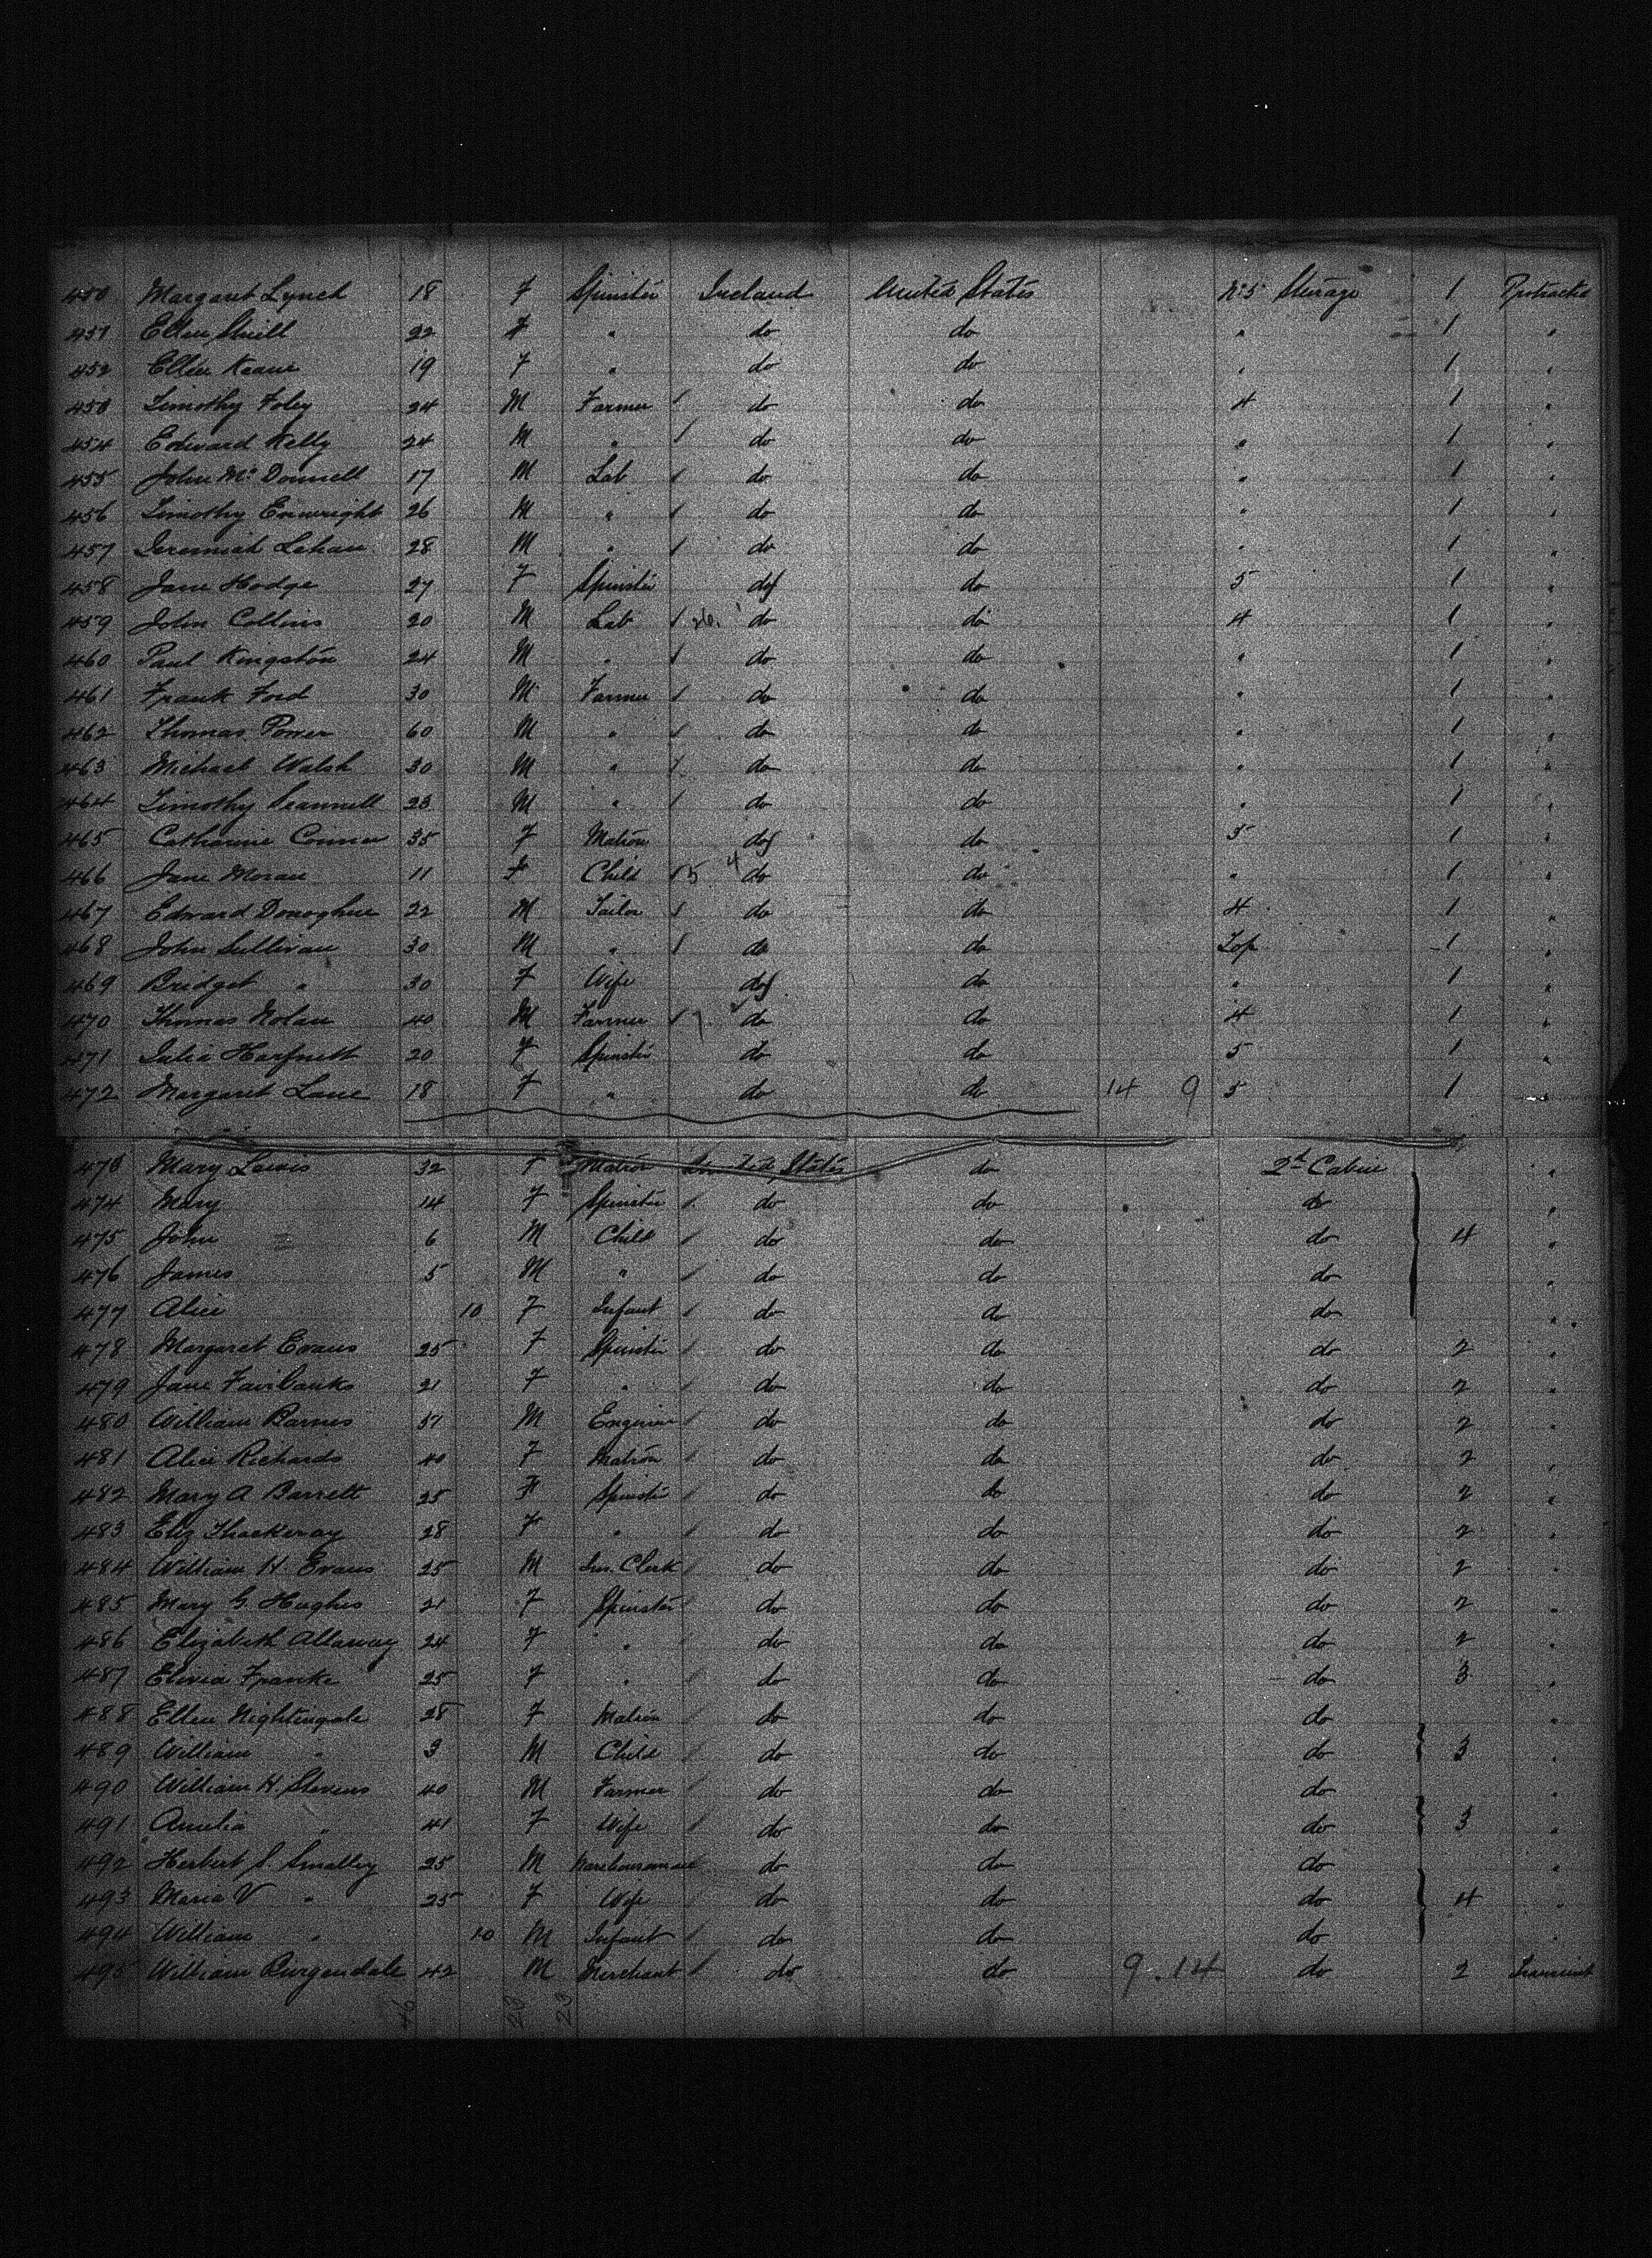 450 Margaret Lynch 18 F Spinster Ireland United States No 5 Steerage 1 Protracted
451 Ellen 22 F " do do " 1 "
452 Ellen Keane 19 F " do do " 1 "
453 Timothy Foley 24 M Farmer 1 do do 4 1 "
454 Edward Kelly 24 M " 1 do do " 1 "
455 John McDonnell 17 M Lab 1 do do " 1 "
456 Timothy Enwright 26 M " 1 do do " 1 "
457 Jeremiah Lehan 28 M " 1 do do " 1 "
458 Jane Hodge 27 F Spinster do do 5 1 "
459 John Collins 20 M Lab 1 26 do do 4 1 "
460 Paul Kingston 24 M " 1 do do " 1 "
461 Frank Ford 30 M Farmer 1 do do " 1 "
462 Thomas Power 60 M " 1 do do " 1 "
463 Michael Walsh 30 M " 1 do do " 1 "
464 Timothy Scannell 23 M " 1 do do " 1 "
465 Catharine Connor 35 F Matron do do 5 1 "
466 Jane Moran 11 F Child 1 5 4 do do " 1 "
467 Edward Donoghue 22 M Tailor 1 do do 4 1 "
468 John Sullivan 30 M " 1 do do Top 1 "
469 Bridget " 30 F Wife do do " 1 "
470 Thomas Nolan 40 M Farmer 1 7 do do 4 1 "
471 Julia 20 F Spinster do do 5 1 "
472 Margaret Lane 18 F " do do 14 9 5 1
473 Mary Lewis 32 F Matron United States do 2d Cabin "
474 Mary 14 F Spinster 1 do do do "
475 John 6 M Child 1 do do do 4 "
476 James 5 M " 1 do do do "
477 Alice 10 F Infant 1 do do do "
478 Margaret Evans 25 F Spinster 1 do do do 2 "
479 Jane Fairbanks 21 F " 1 do do do 2 "
480 William Barnes 37 M Engineer 1 do do do 2 "
481 Alice Richards 40 F Matron 1 do do do 2 "
482 Mary A Barrett 25 F Spinster 1 do do do 2 "
483 Eliz Thackeray 28 F " 1 do do do 2 "
484 William H. Evans 25 M Ins. Clerk 1 do do do 2 "
485 Mary G. Hughes 21 F Spinster 1 do do do 2 "
486 Elizabeth Allaway 24 F " 1 do do do 2 "
487 Franke 25 F " 1 do do do 3 "
488 Ellen Nightingale 28 F Matron 1 do do do "
489 William " 3 M Child 1 do do do 3 "
490 William H. Stevens 40 M Farmer 1 do do do "
491 Amelia " 41 F Wife 1 do do do 3 "
492 Herbert S. Smalley 25 M Warehouseman do do do "
493 Maria V " 25 F Wife 1 do do do 4 "
494 William " 10 M Infant 1 do do do "
495 William Burgendale 42 M Merchant 1 do do 9.14 do 2 Transient
46 23 23